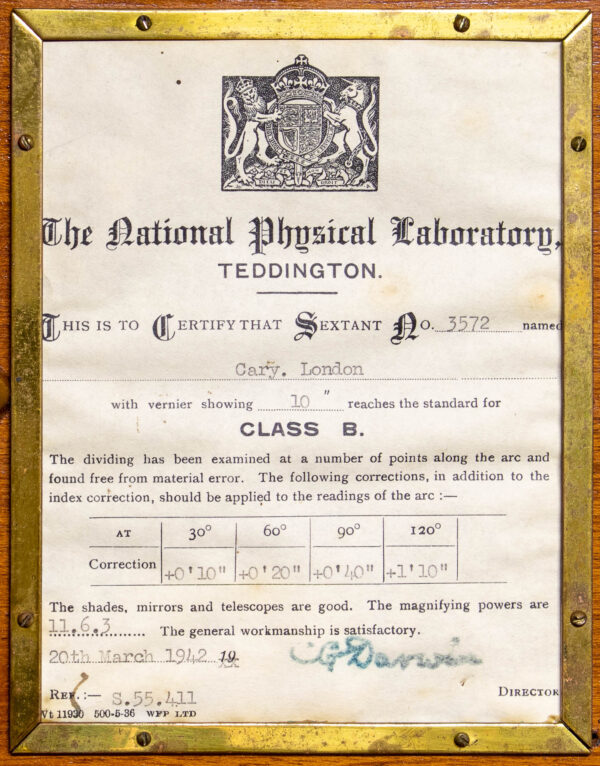 DIEU ET MON DROIT
The National Physical Laboratory,
TEDDINGTON.
THIS IS TO CERTIFY THAT SEXTANT NO. 3572 named
Cary. London
with vernier showing 10 " reaches the standard for
CLASS B.
The dividing has been examined at a number of points along the arc and
found free from material error. The following corrections, in addition to the
index correction, should be applied to the readings of the arc :—
AT 30° 60° 90° 120°
Correction +0'10" +0'20" +0'40" +1'10"
The shades, mirrors and telescopes are good. The magnifying powers are
11.6.3 The general workmanship is satisfactory.
20th March 1942 19
CG Darwin
REF. :— S.55.411 DIRECTOR
Vt 11930 500-5-36 WFP LTD